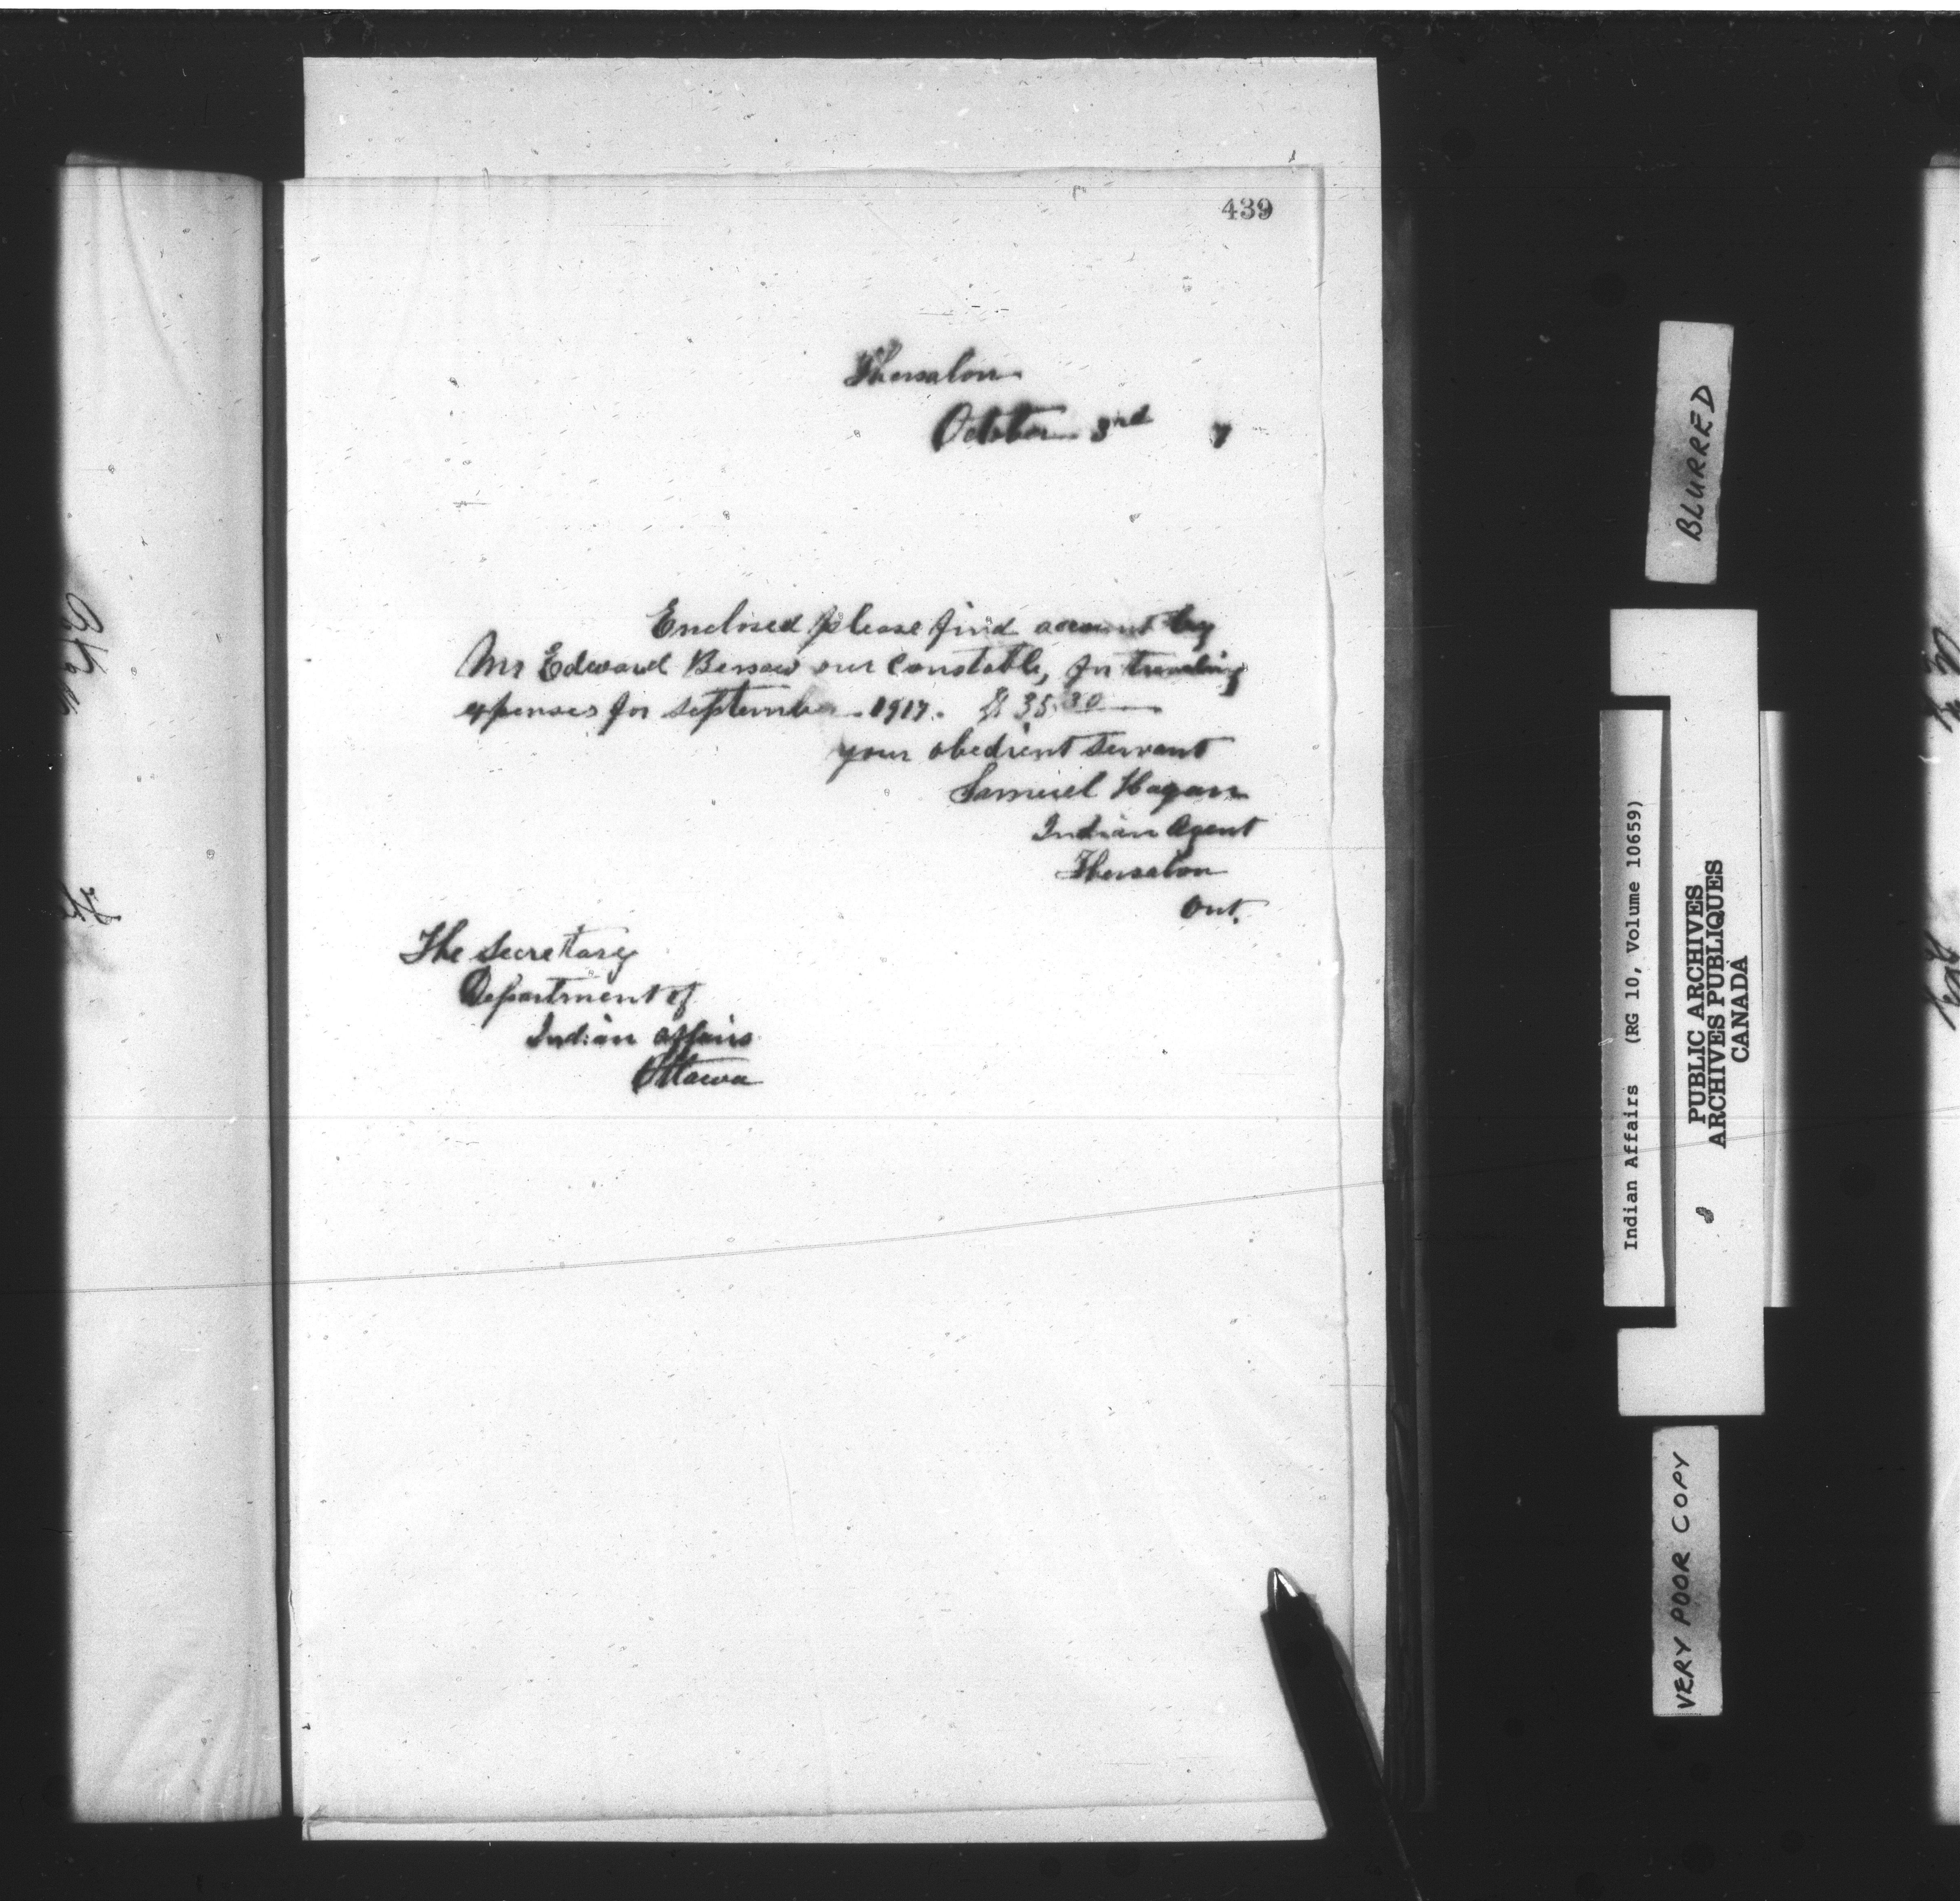 439
Thessalon
October 3rd 7
Enclosed please find account by
Mr Edward Bessaw our Constable, for traveling
expenses for September 1917. $35.30
your obedient servant
Samuel Hagan
Indian Agent
Thessalon
Ont.
The Secretary
Department of
Indian Affairs
Ottawa
BLURRED
Indian Affairs (RG 10, Volume 10659)
PUBLIC ARCHIVES
ARCHIVES PUBLIQUES
CANADA
VERY POOR COPY